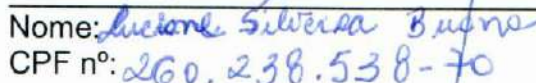 Nome: Luciane Silveira Bueno
CPF nº: 260.238.538-70